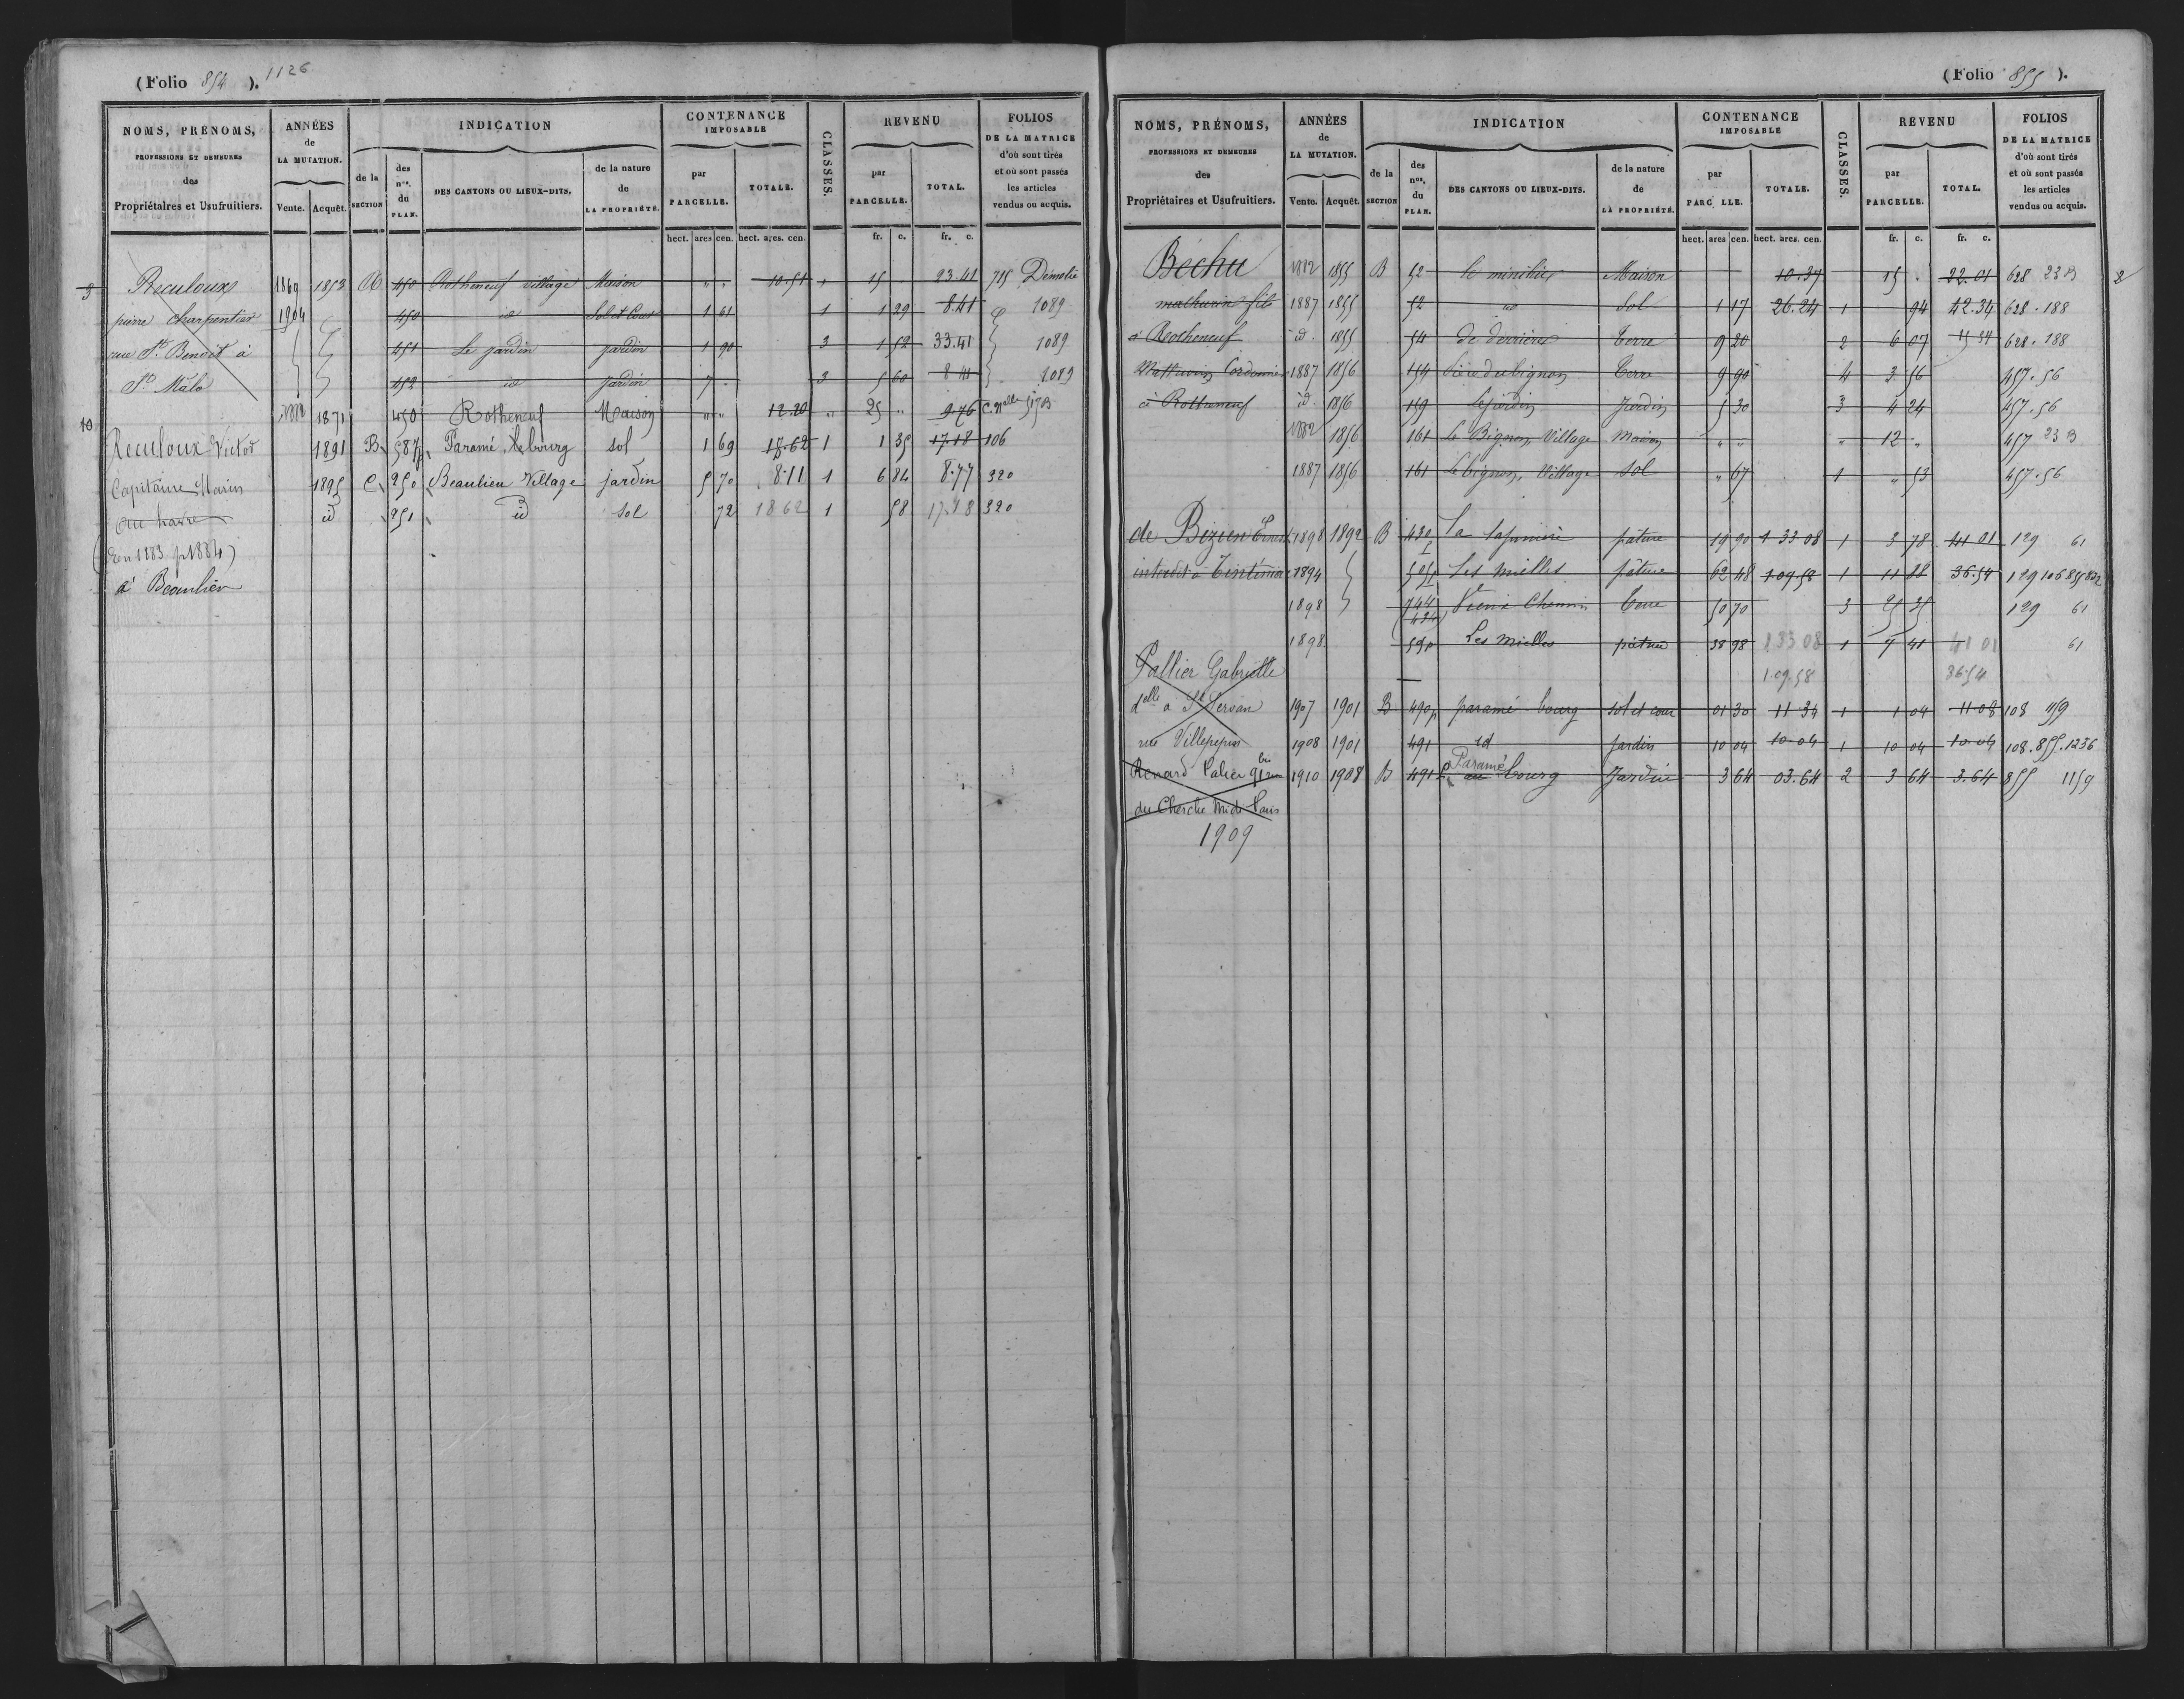 (Folio 854 ). 1126
NOMS, PRÉNOMS, PROFESSIONS ET DEMEURES des Propriétaires et Usufruitiers. ANNÉES de LA MUTATION. Vente. Acquêt. INDICATION de la SECTION des nos. du PLAN. DES CANTONS OU LIEUX-DITS. de la nature de LA PROPRIÉTÉ. CONTENANCE IMPOSABLE par PARCELLE. TOTALE. CLASSES. REVENU par PARCELLE. TOTAL. FOLIOS DE LA MATRICE d'où sont tirés et où sont passés les articles vendus ou acquis.
hect. ares cen. hect. ares. cen. fr. c. fr. c.
3 Reculoux 1869 1853 450 Rotheneuf village Maison " " 10.51 " 15 23.41 715 Démolie
pierre charpentier 1904 450 id Sol et Cour 1 61 1 1 29 8.41 1089
rue St. Benoit à 451 Le jardin jardin 1 90 3 1 52 33.41 1089
St. Malo 452 id jardin 7 . 3 5 60 8 41 1089
10 1882 1871 450 Rotheneuf Maison " " 12.20 " 25 " 9.76 C. Nelle
Reculoux Victor 1891 B 587p Paramé, le bourg sol 1 69 17.62 1 1 35 17.18 106
Capitaine Marin 1895 C 250 Beaulieu Village jardin 5 70 8.11 1 6 84 8.77 320
au havre id 251 id sol 72 18 62 1 58 17.18 320
(En 1883 p1884)
à Beaulieu
(Folio 855 ).
NOMS, PRÉNOMS, PROFESSIONS ET DEMEURES des Propriétaires et Usufruitiers. ANNÉES de LA MUTATION. Vente. Acquêt. INDICATION de la SECTION des nos. du PLAN. DES CANTONS OU LIEUX-DITS. de la nature de LA PROPRIÉTÉ. CONTENANCE IMPOSABLE par PARC LLE. TOTALE. CLASSES. REVENU par PARCELLE. TOTAL. FOLIOS DE LA MATRICE d'où sont tirés et où sont passés les articles vendus ou acquis.
hect. ares cen. hect. ares. cen. fr. c. fr. c.
Béchu 1882 1855 B 52 le minihier Maison 10.37 15 . 22.01 628 23 B 2
mathurin fils 1887 1855 52 id Sol 1 17 26.24 1 94 42.34 628.188
à Rotheneuf id. 1855 54 de derrière Terre 9 20 2 6 07 628.188
Mathurin Cordonnier 1887 1856 154 Terre 9 90 4 3 56 457.56
à Rotheneuf id. 1856 159 Le jardin Jardin 5 30 3 4 24 457.56
1882 1856 161 Le Bignon, Village Maison " " " 12 " 457 23 B
1887 1856 161 Le bignon, Village sol " 67 1 " 53 457.56
de Bizien 1898 1892 B 430 La Sapinière pâture 19 90 1 33 08 1 3 78 41 01 129 61
interdit à Tinténiac 1894 Les Mielles pâture 62 48 1 09 58 1 11 88 36.54 129 106 855 832
1898 744 Vieux Chemin Terre 50 70 3 25 35 129 61
1898 Les Mielles pâture 38 98 1 33 08 1 7 41 41 01 61
Pallier Gabrielle 1.09.58 36.54
delle à St Servan 1907 1901 B 490p paramé bourg sol et cour 01 30 11 34 1 1 04 11 08 108 1159
rue Villepepin 1908 1901 491 id jardin 10 04 10.04 1 10 04 10.04 108.855.1236
Renard Palier 91 bis rue 1910 1908 B 491p Paramé au bourg Jardin 3 64 03.64 2 3 64 3.64 855 1159
du Cherche Midi Paris
1909